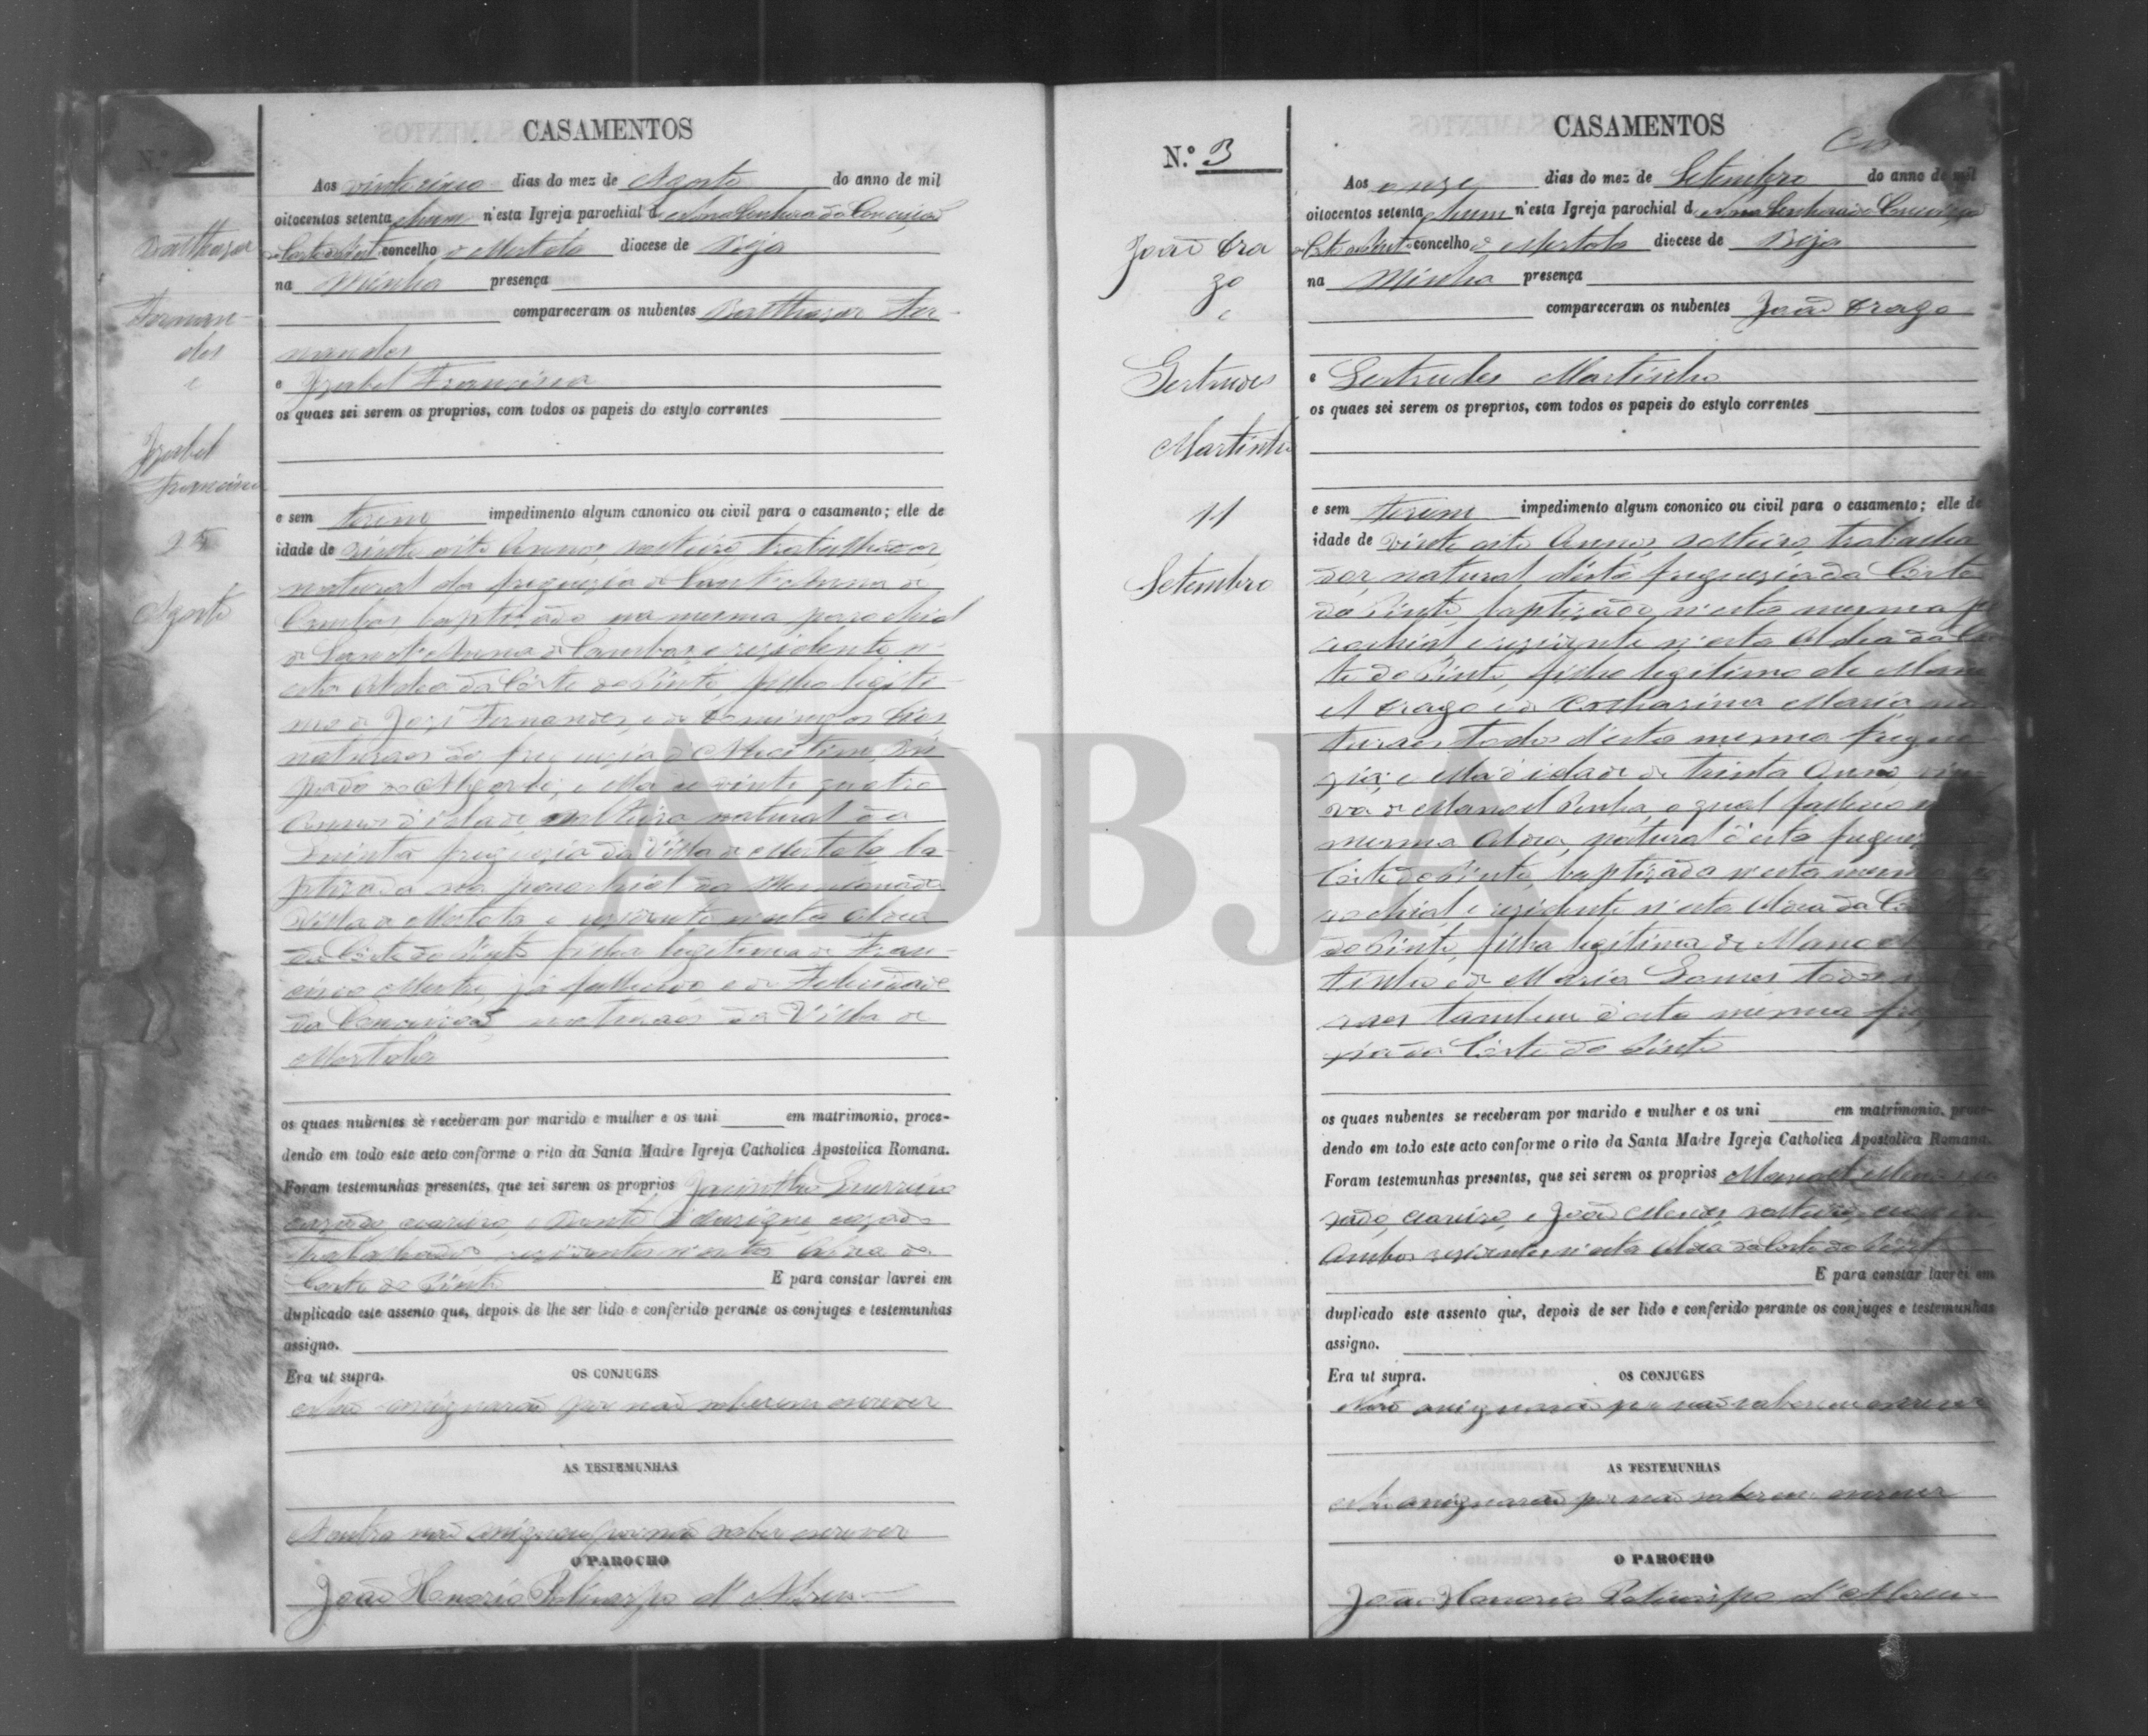 CASAMENTOS
N.º
Aos vinte cinco dias do mez de Agosto do anno de mil
oitocentos setenta e hum n'esta Igreja parochial d Nossa Senhora da Conceição
da Corte do Pinto concelho de Mertola diocese de Beja
na Minha presença
compareceram os nubentes Balthazar Fer-
nandes
e Izabel Francisca
os quaes sei serem os proprios, com todos os papeis do estylo correntes
e sem terem impedimento algum canonico ou civil para o casamento; elle de
idade de vinte oito Annos, solteiro, trabalhador,
natural da freguezia de Sant'Anna de
Cambas, baptizado na mesma parochial
de Sant'Anna de Cambas e rezidente n'
esta Aldea da Côrte do Pinto, filho legiti-
mo de José Fernandes, e de Domingas Dias,
naturaes da freguezia de
do Algarve; e ella de vinte quatro
Annos d'idade solteira natural da
freguezia da Villa de Mertola ba-
ptizada na parochial da mencionada
Villa de Mertola e rezidente n'esta Aldea
da Côrte do Pinto filha legitima de Fran-
cisco Mestre, já fallecido e de Felicidade
da Conceição naturaes da Villa de
Mertola
os quaes nubentes se receberam por marido e mulher e os uni em matrimonio, proce-
dendo em todo este acto conforme o rito da Santa Madre Igreja Catholica Apostolica Romana.
Foram testemunhas presentes, que sei serem os proprios Jacintho Guerreiro
cazado, e Bento cazado
trabalhador, rezidentes n'esta Aldea da
Corte do Pinto E para constar lavrei em
duplicado este assento que, depois de lhe ser lido e conferido perante os conjuges e testemunhas
assigno.
Era ut supra.
OS CONJUGES
Não assignarão por não saberem escrever
AS TESTEMUNHAS
não assignou por não saber escrever
O PAROCHO
João Honorio Policarpo d'Abreu
Balthazar
Fernan-
des
e
Izabel
Francisca
25
Agosto
CASAMENTOS
N.º 3
Aos onze dias do mez de Setembro do anno de mil
oitocentos setenta e hum n'esta Igreja parochial d Nossa Senhora da Conceição
da Corte do Pinto concelho de Mertola diocese de Beja
na Minha presença
compareceram os nubentes João Drago
e Gertrudes Martinha
os quaes sei serem os proprios, com todos os papeis do estylo correntes
e sem terem impedimento algum cononico ou civil para o casamento; elle de
idade de vinte oito Annos, solteiro, trabalha-
dor, natural d'esta freguezia da Côrte
do Pinto, baptizado n'esta mesma pa
rochial e rezidente n'esta Aldea da Cor
te do Pinto, filho legitimo de Mano
el Drago e de Catharina Maria na
turaes todos d'esta mesma fregue
zia; e ella d'idade de trinta Annos viu-
va de Manoel Penha, o qual falleceo n
mesma Aldea, natural d'esta fregue
Côrte do Pinto, baptizada n'esta mesma
rochial e rezidente n'esta Aldea da Cor
do Pinto, filha legitima de Manoel
tinho e de Maria Gomes todos
raes tambem d'esta mesma fre
zia da Côrte do Pinto
os quaes nubentes se receberam por marido e mulher e os uni em matrimonio, proce-
dendo em todo este acto conforme o rito da Santa Madre Igreja Catholica Apostolica Romana.
Foram testemunhas presentes, que sei serem os proprios Manoel
zado, e João Mendes solteiro
Ambos rezidentes n'esta Aldea da Corte do Pinto
E para constar lavrei em
duplicado este assento que, depois de ser lido e conferido perante os conjuges e testemunhas
assigno.
Era ut supra.
OS CONJUGES
Não assignarão por não saberem escrever
AS TESTEMUNHAS
Não assignarão por não saberem escrever
O PAROCHO
João Honorio Policarpo d'Abreu
João Dra
go
e
Gertrudes
Martinha
11
Setembro
ADBJA